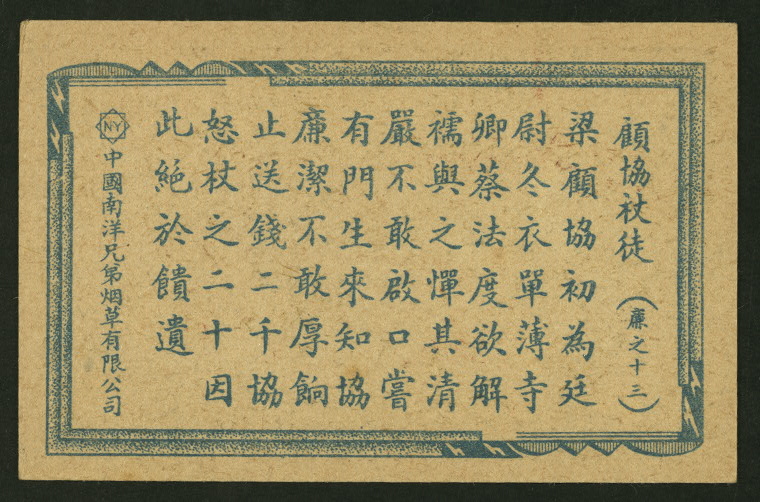 顧協杖徒（廉之十三）
梁顧協初為廷
尉冬衣單薄寺
卿蔡法度欲解
襦與之憚其清
嚴不敢啟口嘗
有門生來知協
廉潔不敢厚餉
止送錢二千協
怒杖之二十因
此絕於饋遺
NY
中國南洋兄弟烟草有限公司